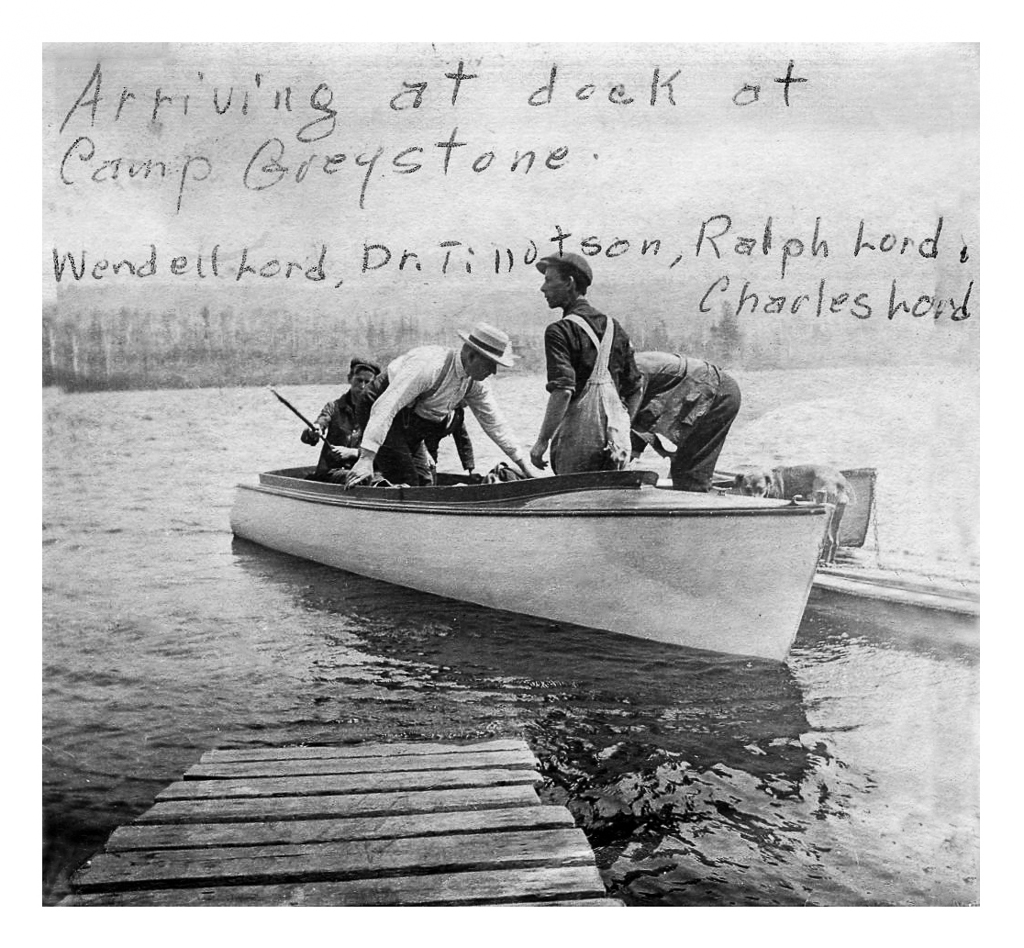 Arriving at dock at
Camp Greystone.
Wendell Lord, Dr. Tillotson, Ralph Lord,
Charles Lord